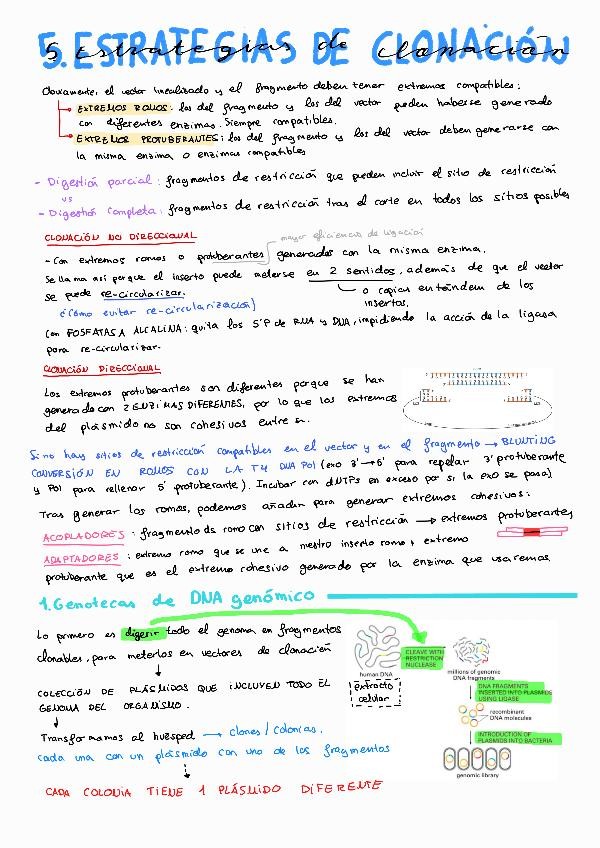 5. ESTRATEGIAS DE CLONACIÓN
5. Estrategias de clonación
Obviamente, el vector linealizado y el fragmento deben tener extremos compatibles:
EXTREMOS ROMOS: los del fragmento y los del vector pueden haberse generado
con diferentes enzimas. Siempre compatibles.
EXTREMOS PROTUBERANTES: los del fragmento y los del vector deben generarse con
la misma enzima o enzimas compatibles
- Digestión parcial: fragmentos de restricción que pueden incluir el sitio de restricción
vs
- Digestión completa: fragmentos de restricción tras el corte en todos los sitios posibles
CLONACIÓN NO DIRECCIONAL
mayor eficiencia de ligación
- Con extremos romos o protuberantes generados con la misma enzima.
Se llama así porque el inserto puede meterse en 2 sentidos, además de que el vector
se puede re-circularizar.
o copias en tándem de los
insertos.
¿Cómo evitar re-circularización?
Con FOSFATASA ALCALINA: quita los 5'P de RNA y DNA, impidiendo la acción de la ligasa
para re-circularizar.
CLONACIÓN DIRECCIONAL
Los extremos protuberantes son diferentes porque se han
generado con 2 ENZIMAS DIFERENTES, por lo que los extremos
del plásmido no son cohesivos entre sí.
Si no hay sitios de restricción compatibles en el vector y en el fragmento → BLUNTING
CONVERSIÓN EN ROMOS CON LA T4 DNA Pol (exo 3'→5' para repelar 3' protuberante
y Pol para rellenar 5' protuberante). Incubar con dNTPs en exceso por si la exo se pasa)
Tras generar los romos, podemos añadir para generar extremos cohesivos:
ACOPLADORES: fragmento ds romo con sitios de restricción → extremos protuberantes
ADAPTADORES: extremo romo que se une a nuestro inserto romo y extremo
protuberante que es el extremo cohesivo generado por la enzima que usaremos
1. Genotecas de DNA genómico
Lo primero es digerir todo el genoma en fragmentos
clonables, para meterlos en vectores de clonación
COLECCIÓN DE PLÁSMIDOS QUE INCLUYEN TODO EL
GENOMA DEL ORGANISMO.
Transformamos al huésped → clones / colonias,
cada una con un plásmido con uno de los fragmentos
CADA COLONIA TIENE 1 PLÁSMIDO DIFERENTE
human DNA
extracto
celular
CLEAVE WITH
RESTRICTION
NUCLEASE
millions of genomic
DNA fragments
DNA FRAGMENTS
INSERTED INTO PLASMIDS
USING LIGASE
recombinant
DNA molecules
INTRODUCTION OF
PLASMIDS INTO BACTERIA
genomic library